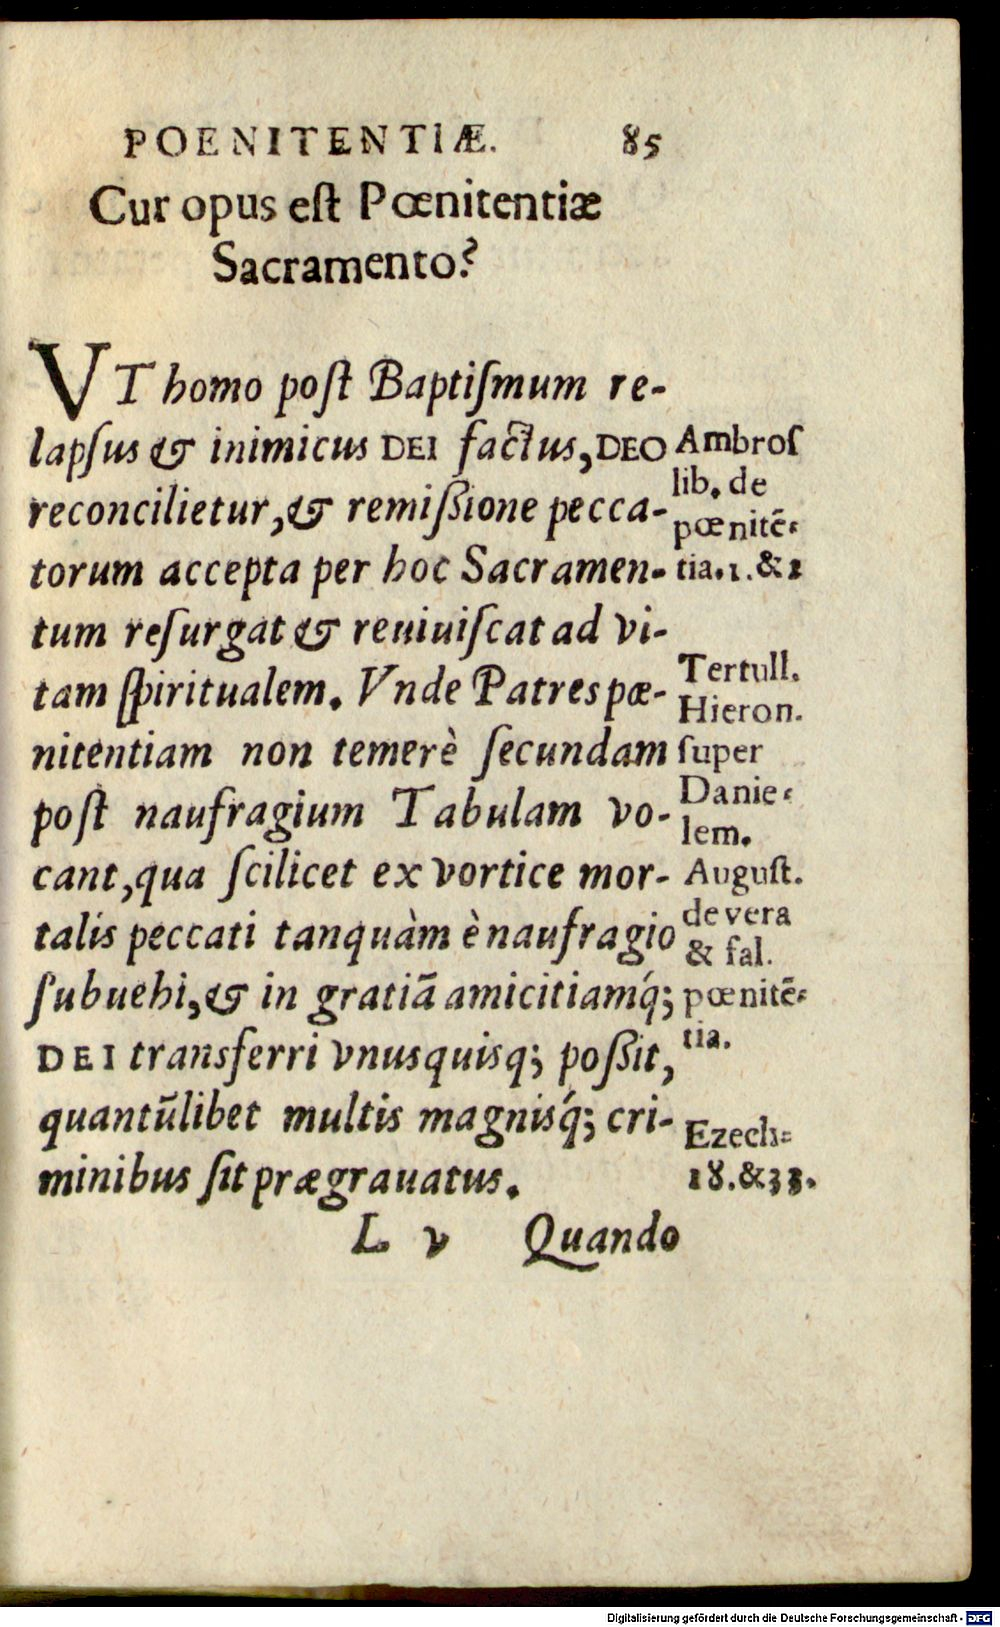 POENITENTIÆ. 85
Cur opus eſt Pœnitentiæ
Sacramento?
VT homo poſt Baptiſmum re-
lapſus & inimicus DEI factus, DEO
reconcilietur, & remißione pecca-
torum accepta per hoc Sacramen-
tum reſurgat & reuiuiſcat ad vi-
tam ſpiritualem. Vnde Patres pœ-
nitentiam non temerè ſecundam
poſt naufragium Tabulam vo-
cant, qua ſcilicet ex vortice mor-
talis peccati tanquàm è naufragio
ſubuehi, & in gratiã amicitiamq́;
DEI transferri vnusquisq; poßit,
quantũlibet multis magnisq́; cri-
minibus ſit prægrauatus.
L v Quando
Ambroſ
lib. de
pœnitẽ-
tia. 1. & 2
Tertull.
Hieron.
ſuper
Danie-
lem.
Auguſt.
de vera
& fal.
pœnitẽ-
tia.
Ezech-
18. & 33.
Digitalisierung gefördert durch die Deutsche Forschungsgemeinschaft - DFG